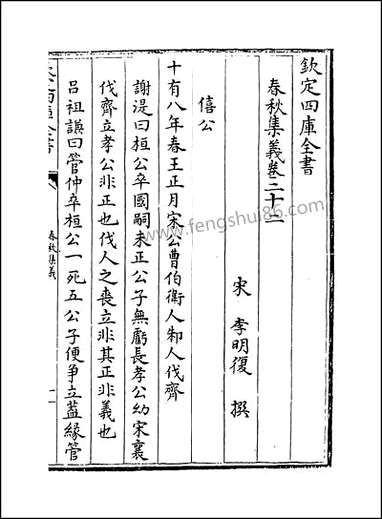 欽定四庫全書
春秋集義卷二十二
宋 李明復 撰
僖公
十有八年春王正月宋公曹伯衛人邾人伐齊
謝湜曰桓公卒國嗣未正公子無虧長孝公幼宋襄
伐齊立孝公非正也伐人之喪立非其正非義也
呂祖謙曰管仲卒桓公一死五公子便爭立蓋緣管
春秋集義
www.fengshui86.com